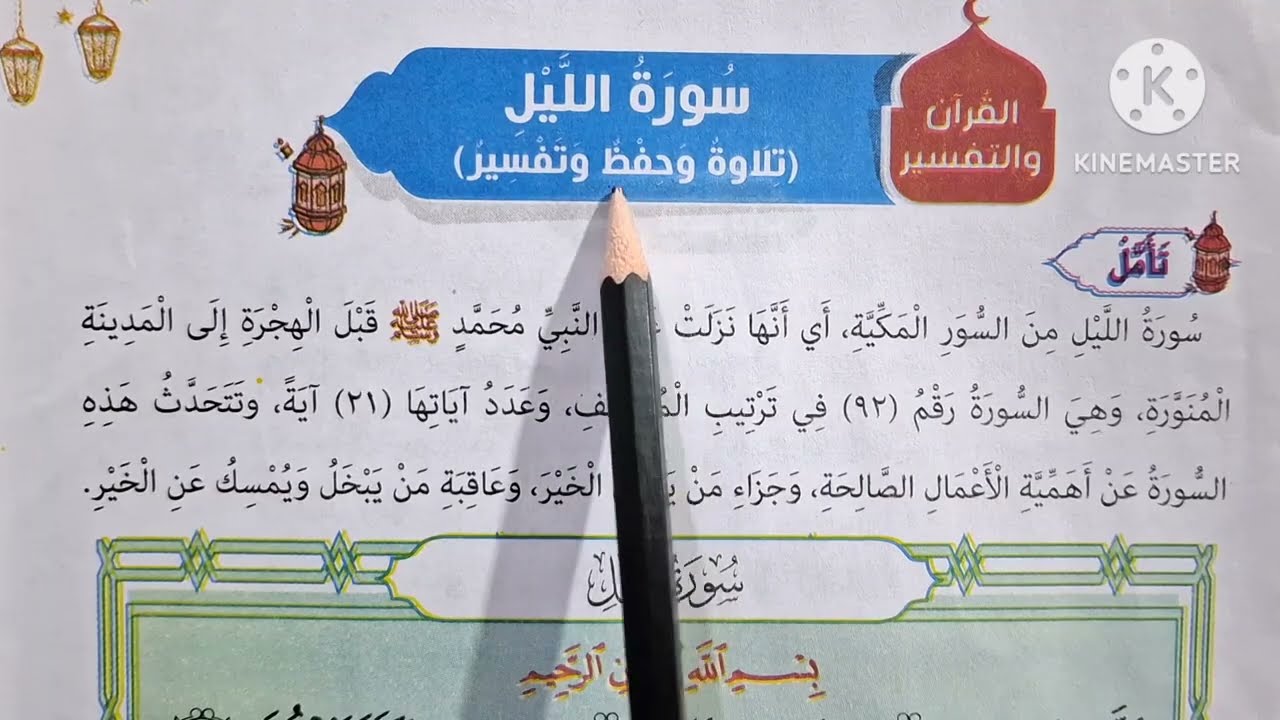 سُورَةُ اللَّيْلِ
(تِلَاوةٌ وَحفْظٌ وَتَفْسِيرٌ)
القُرآن
والتفسير
KINEMASTER
تَأَمَّلْ
سُورَةُ اللَّيْلِ مِنَ السُّوَرِ الْمَكِّيَّةِ، أَي أَنَّهَا نَزَلَتْ النَّبِيِّ مُحَمَّدٍ ﷺ قَبْلَ الْهِجْرَةِ إِلَى الْمَدِينَةِ
الْمُنَوَّرَةِ، وَهِيَ السُّورَةُ رَقْمُ (٩٢) فِي تَرْتِيبِ وَعَدَدُ آيَاتِهَا (٢١) آيَةً، وَتَتَحَدَّثُ هَذِهِ
السُّورَةُ عَنْ أَهَمِّيَّةِ الْأَعْمَالِ الصَّالِحَةِ، وَجَزَاءِ مَنْ الْخَيْرَ، وَعَاقِبَةِ مَنْ يَبْخَلُ وَيُمْسِكُ عَنِ الْخَيْرِ.
سُورَةُ
بِسْمِ اللَّهِ الرَّحِيمِ